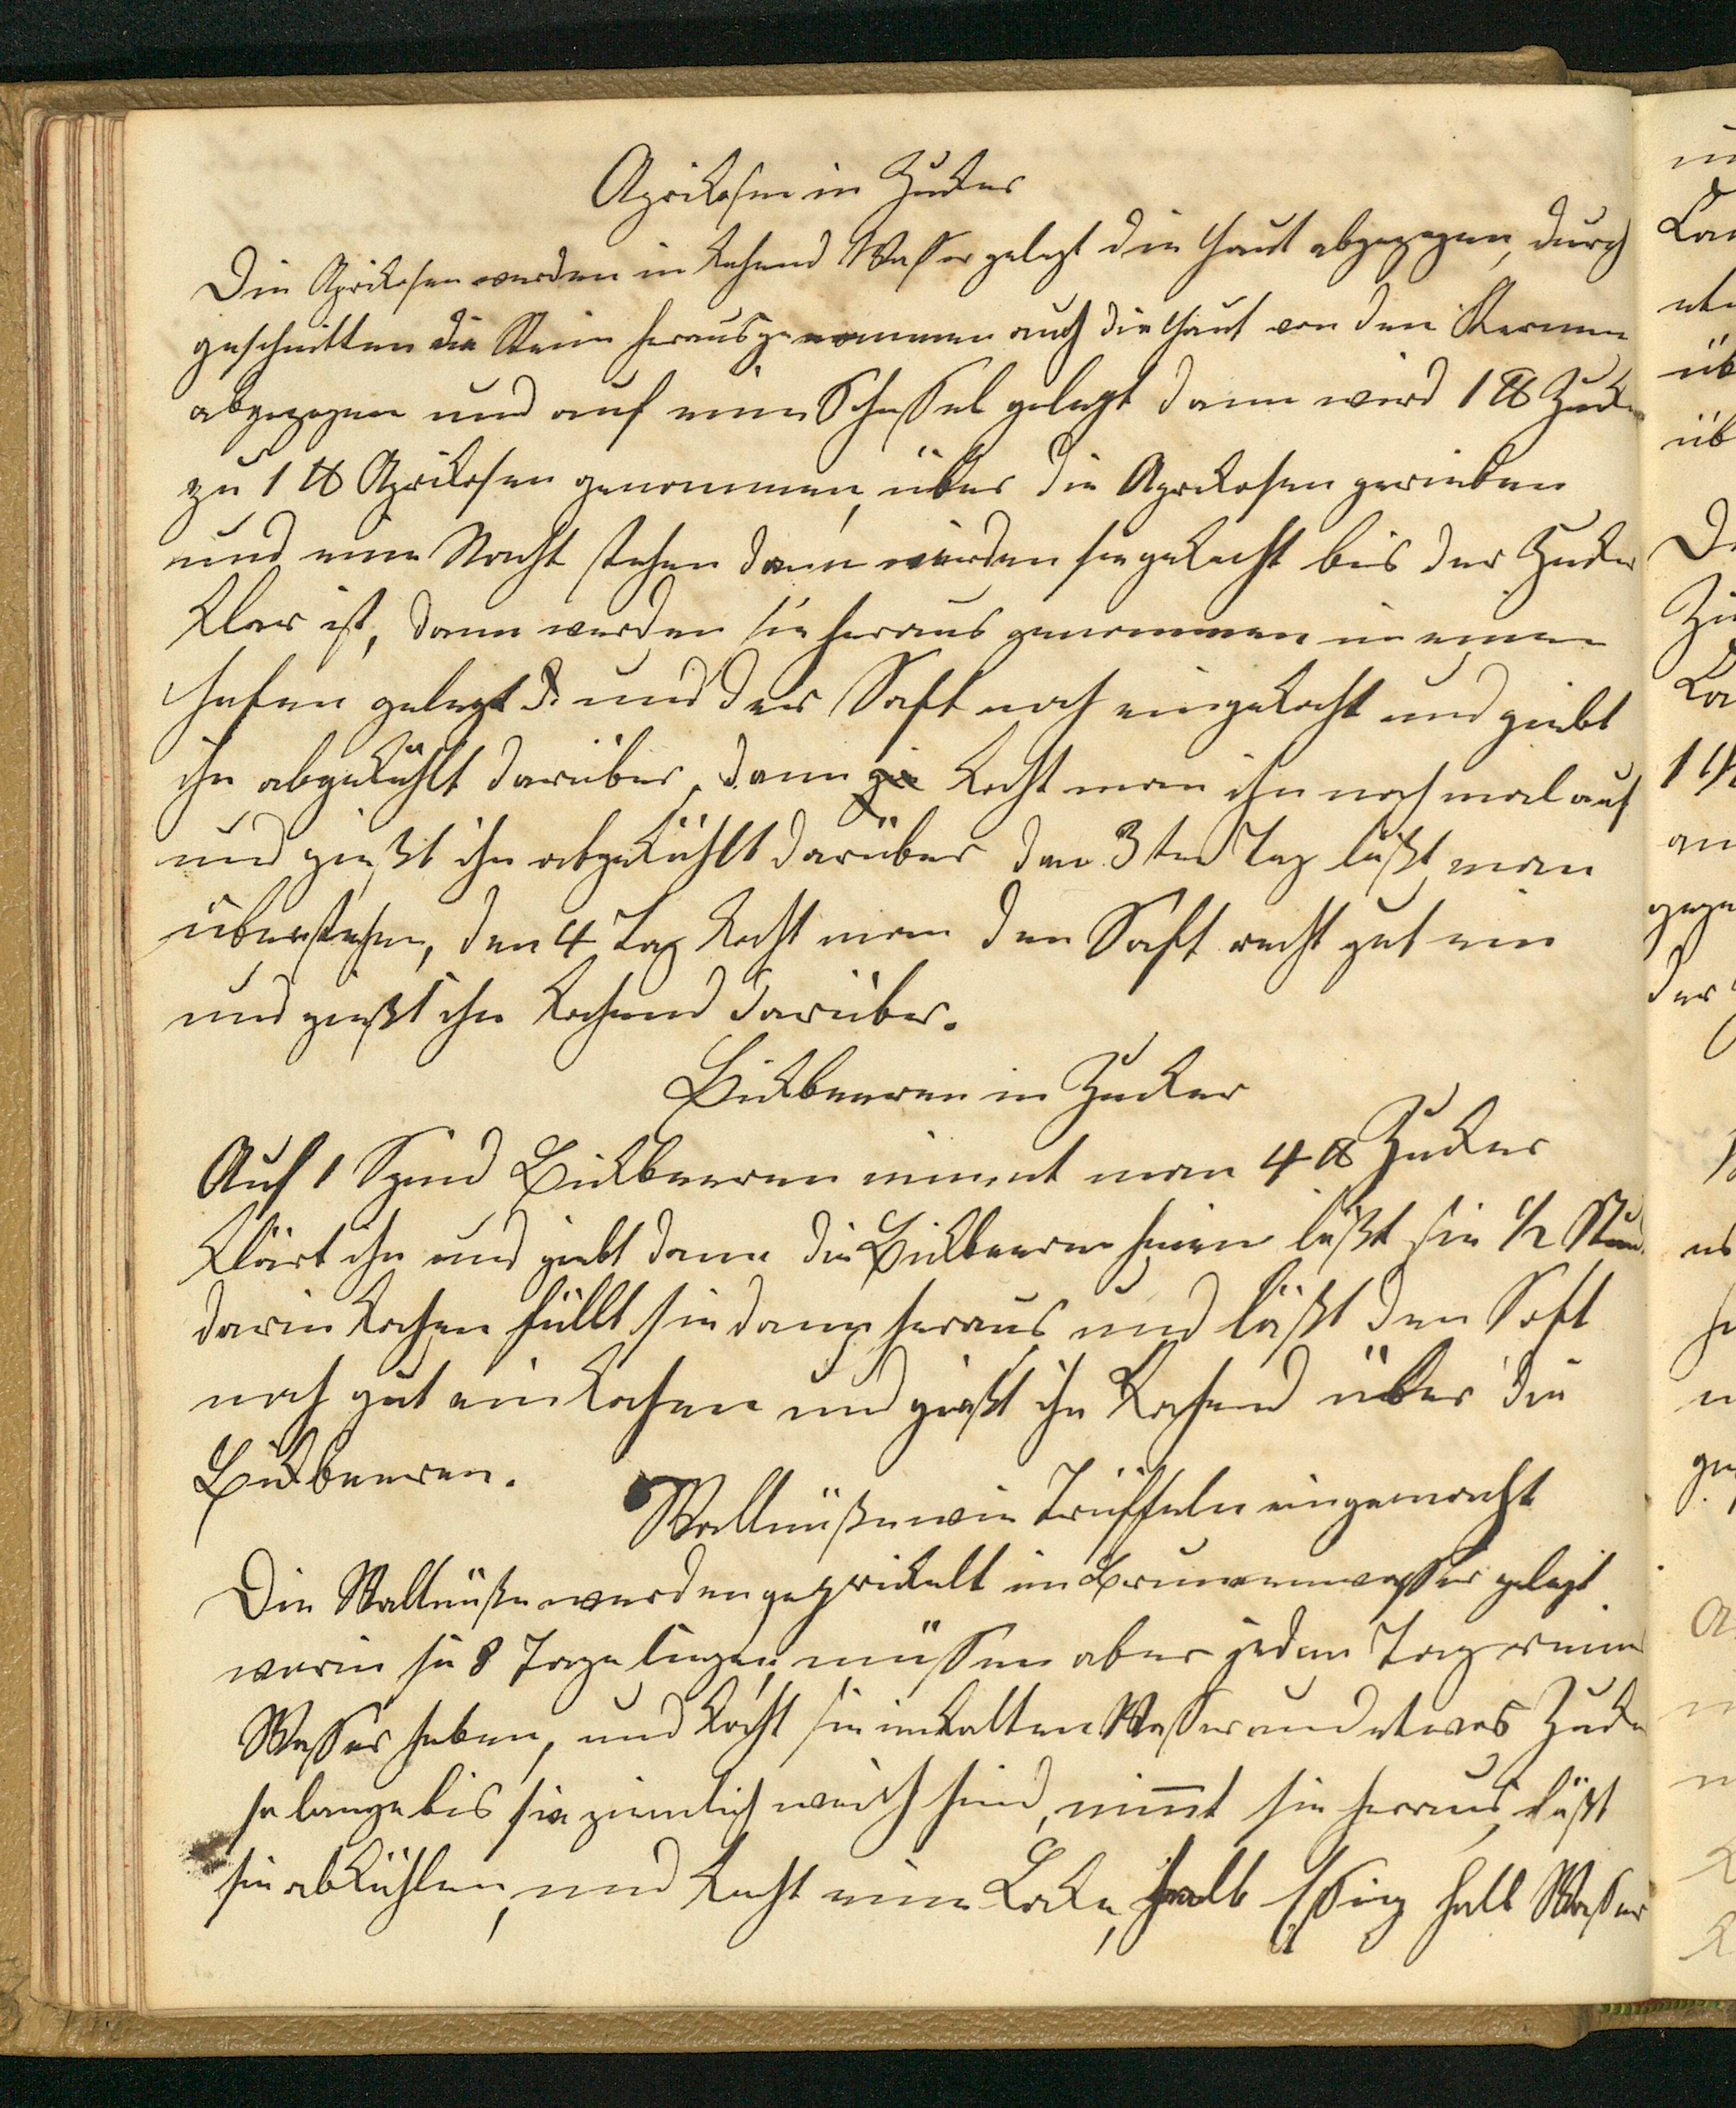 Aprikosen in Zucker
Die Aprikosen werden in kochend Wasser gelegt die Haut abgezogen, durch
geschnitten die Steine herausgenommen auch die Haut von den Kernen
abgezogen und auf eine Schüssel gelegt dann wird 1 ℔ Zucker
zu 1 ℔ Aprikosen genommen, über die Aprikosen gerieben
und eine Nacht stehen dann werden sie gekocht bis der Zucker
klar ist, dann werden sie heraus genommen in einen
Hafen gelegt und der Saft noch eingekocht und giebt
ihn abgekühlt darüber, dann kocht man ihn noch mal auf
und gießt ihn abgekühlt darüber den 3ten Tag läßt man
überstehen, den 4 Tag kocht man den Saft recht gut ein
und gießt ihn kochend darüber.
Bickbeeren in Zucker
Auf 1 Spind Bickbeeren nimmt man 4 ℔ Zucker
klärt ihn und giebt dann die Bickbeeren hinein läßt sie 1/2 Stund
darin kochen füllt sie dann heraus und läßt den Saft
noch gut einkochen und gießt ihn kochend über die
Bickbeeren.
Wallnüße wie Trüffeln eingemacht
Die Wallnüße werden geprickelt in Brunnenwasser gelegt
worin sie 8 Tage liegen, müssen aber jeden Tag rein
Wasser haben, und kocht sie in kalten Wasser und etwas Zucker
so lange bis sie ziemlich weich sind, nimt sie heraus, läßt
sie abkühlen, und kocht eine Lake, halb Eßig halb Waßer